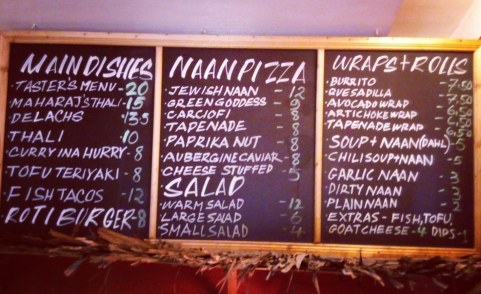 MAIN DISHES
TASTER'S MENU - 20
MAHARAJ'S THALI - 15
DELACHS 13.5
THALI 10
CURRY IN A HURRY - 8
TOFU TERIYAKI - 8
FISH TACOS - 12
ROTI BIRGER - 8
NAAN PIZZA
JEWISH NAAN - 12
GREEN GODDESS - 9
CARCIOFI - 8
TAPENADE - 8
PAPRIKA NUT - 8
AUBERGINE CAVIAR - 8
CHEESE STUFFED - 5
SALAD
WARM SALAD - 12
LARGE SALAD - 6
SMALL SALAD - 4
WRAPS + ROLLS
BURRITO - 7.50
QUESADILLA
AVOCADO WRAP - 7.50
ARTICHOKE WRAP
TAPENADE WRAP - 6.50
SOUP + NAAN (DAHL)
CHILI SOUP + NAAN - 5
GARLIC NAAN - 3
DIRTY NAAN
PLAIN NAAN
EXTRAS - FISH, TOFU,
GOAT CHEESE - 4 DIPS - 1